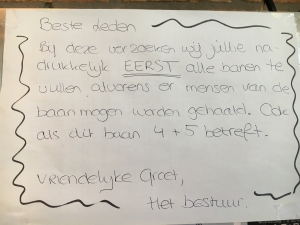 Beste leden
Bij deze verzoeken wij jullie na-
drukkelijk EERST alle banen te
vullen, alvorens er mensen van de
baan mogen worden gehaald. Ook
als dit baan 4 + 5 betreft.
Vriendelijke Groet,
Het bestuur.